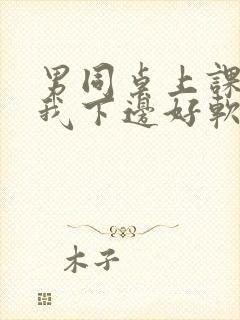 男同桌上課
我下邊好軟
木子